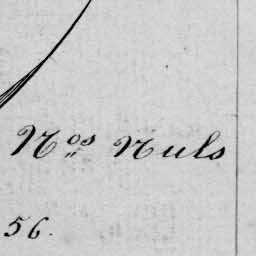 Nos Nuls
56.